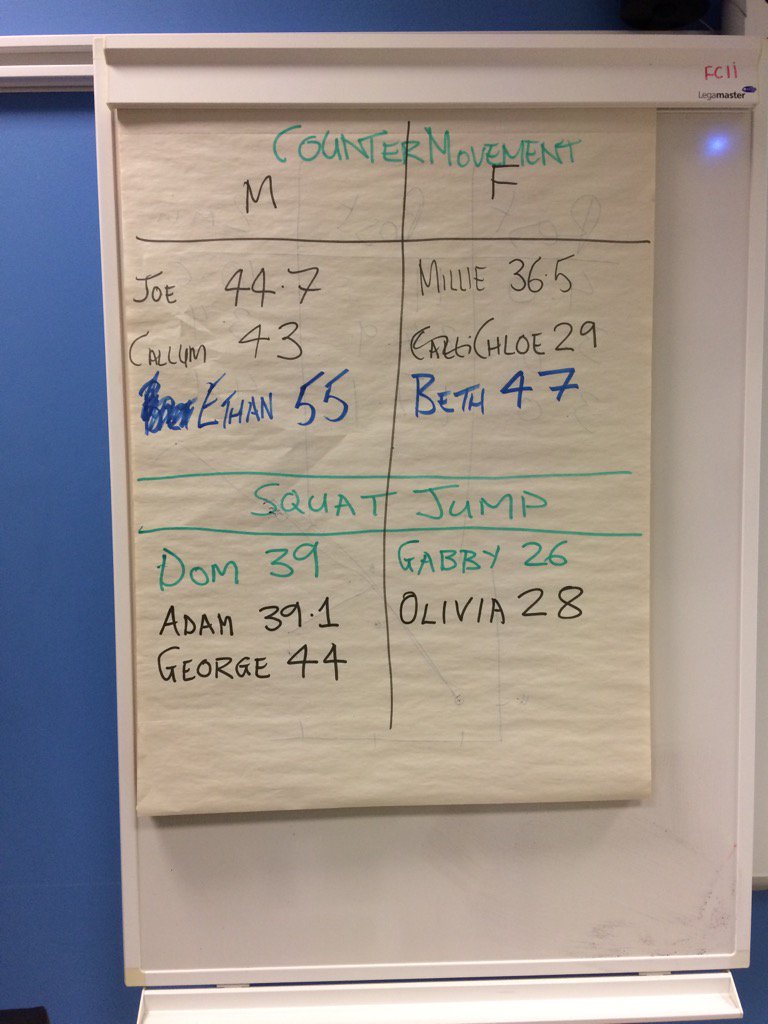 FC11
Legamaster
COUNTER MOVEMENT
M F
JOE 44.7 MILLIE 36.5
CALLUM 43 CHLOE 29
ETHAN 55 BETH 47
SQUAT JUMP
DOM 39 GABBY 26
ADAM 39.1 OLIVIA 28
GEORGE 44